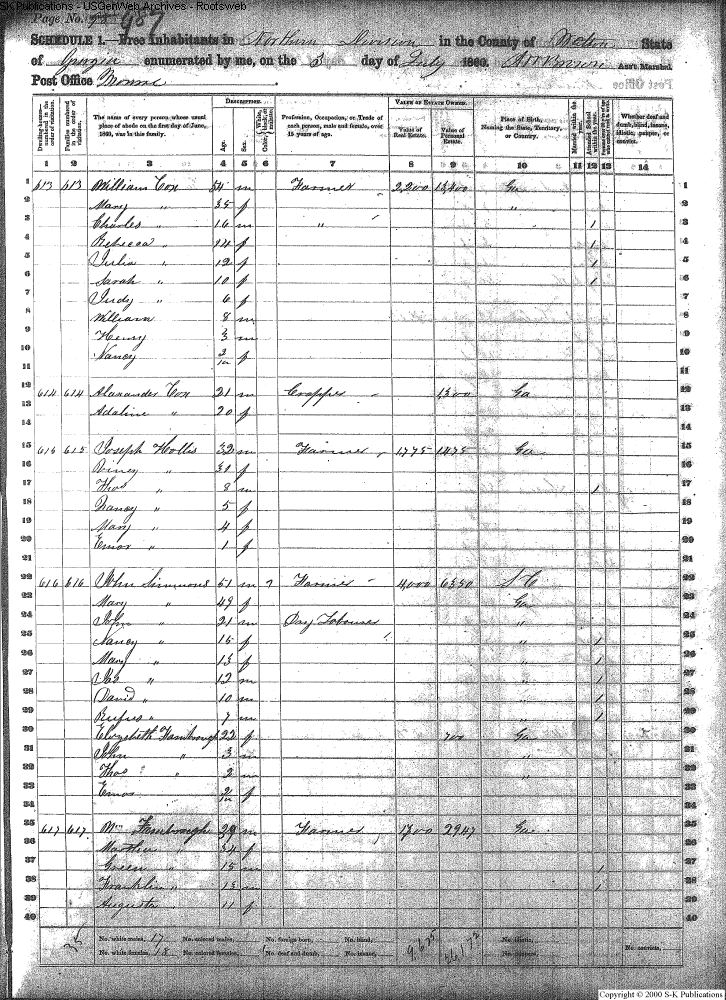 S-K Publications - USGenWeb Archives - Rootsweb
Page No. 987
SCHEDULE 1.—Free Inhabitants in Northern Division in the County of State
of Georgia enumerated by me, on the 3 day of July 1860. Ass't Marshal.
Post Office Monroe
Dwelling-houses—numbered in the order of visitation.
Families numbered in the order of visitation.
The name of every person whose usual place of abode on the first day of June, 1860, was in this family.
DESCRIPTION.
Age.
Sex.
Profession, Occupation, or Trade of each person, male and female, over 15 years of age.
VALUE OF ESTATE OWNED.
Value of Real Estate.
Value of Personal Estate.
Place of Birth, Naming the State, Territory, or Country.
Married within the year.
Attended School within the year.
Whether deaf and dumb, blind, insane, idiotic, pauper, or convict.
1 2 3 4 5 6 7 8 9 10 11 12 13 14
1 613 613 William Cox 54 m Farmer 2,200 13,400 Ga 1
2 Mary " 35 f " 2
3 Charles " 16 m " 1 3
4 Rebecca " 14 f 1 4
5 Julia " 12 f 1 5
6 Sarah " 10 f 1 6
7 Judy " 6 f 7
8 William 8 m 8
9 Henry 3 m 9
10 Nancy 2/12 f 10
11 11
12 614 614 Alaxander Cox 21 m Cropper 1300 Ga 12
13 Adaline " 20 f 13
14 14
15 615 615 Joseph Hollis 32 m Farmer 1775 1475 Ga 15
16 " 31 f 16
17 Thos " 8 m 1 17
18 Nancy " 5 f 18
19 Mary " 4 f 19
20 " 1 f 20
21 21
22 616 616 John Simmons 51 m Farmer 4,000 6350 S C 22
23 Mary " 49 f Ga 23
24 John " 21 m Day Labourer " 24
25 Nancy " 15 f " 1 25
26 Mary " 13 f " 1 26
27 Jas " 12 m " 1 27
28 David " 10 m " 1 28
29 Rufus " 7 m " 1 29
30 Elizabeth 22 f 700 Ga 30
31 John " 3 m " 31
32 Thos " 2 m " 32
33 2/12 f 33
34 34
35 617 617 Wm 39 m Farmer 1700 2947 Ga 35
36 Martha " 34 f 36
37 Green " 15 m 1 37
38 Franklin " 13 m 1 38
39 Augusta 11 f 39
40 40
No. white males, 17 No. colored males, No. foreign born, No. blind, 9,675 26,172 No. idiotic,
No. white females, 18 No. colored females, No. deaf and dumb, No. insane, No. paupers, No. convicts,
Copyright © 2000 S-K Publications